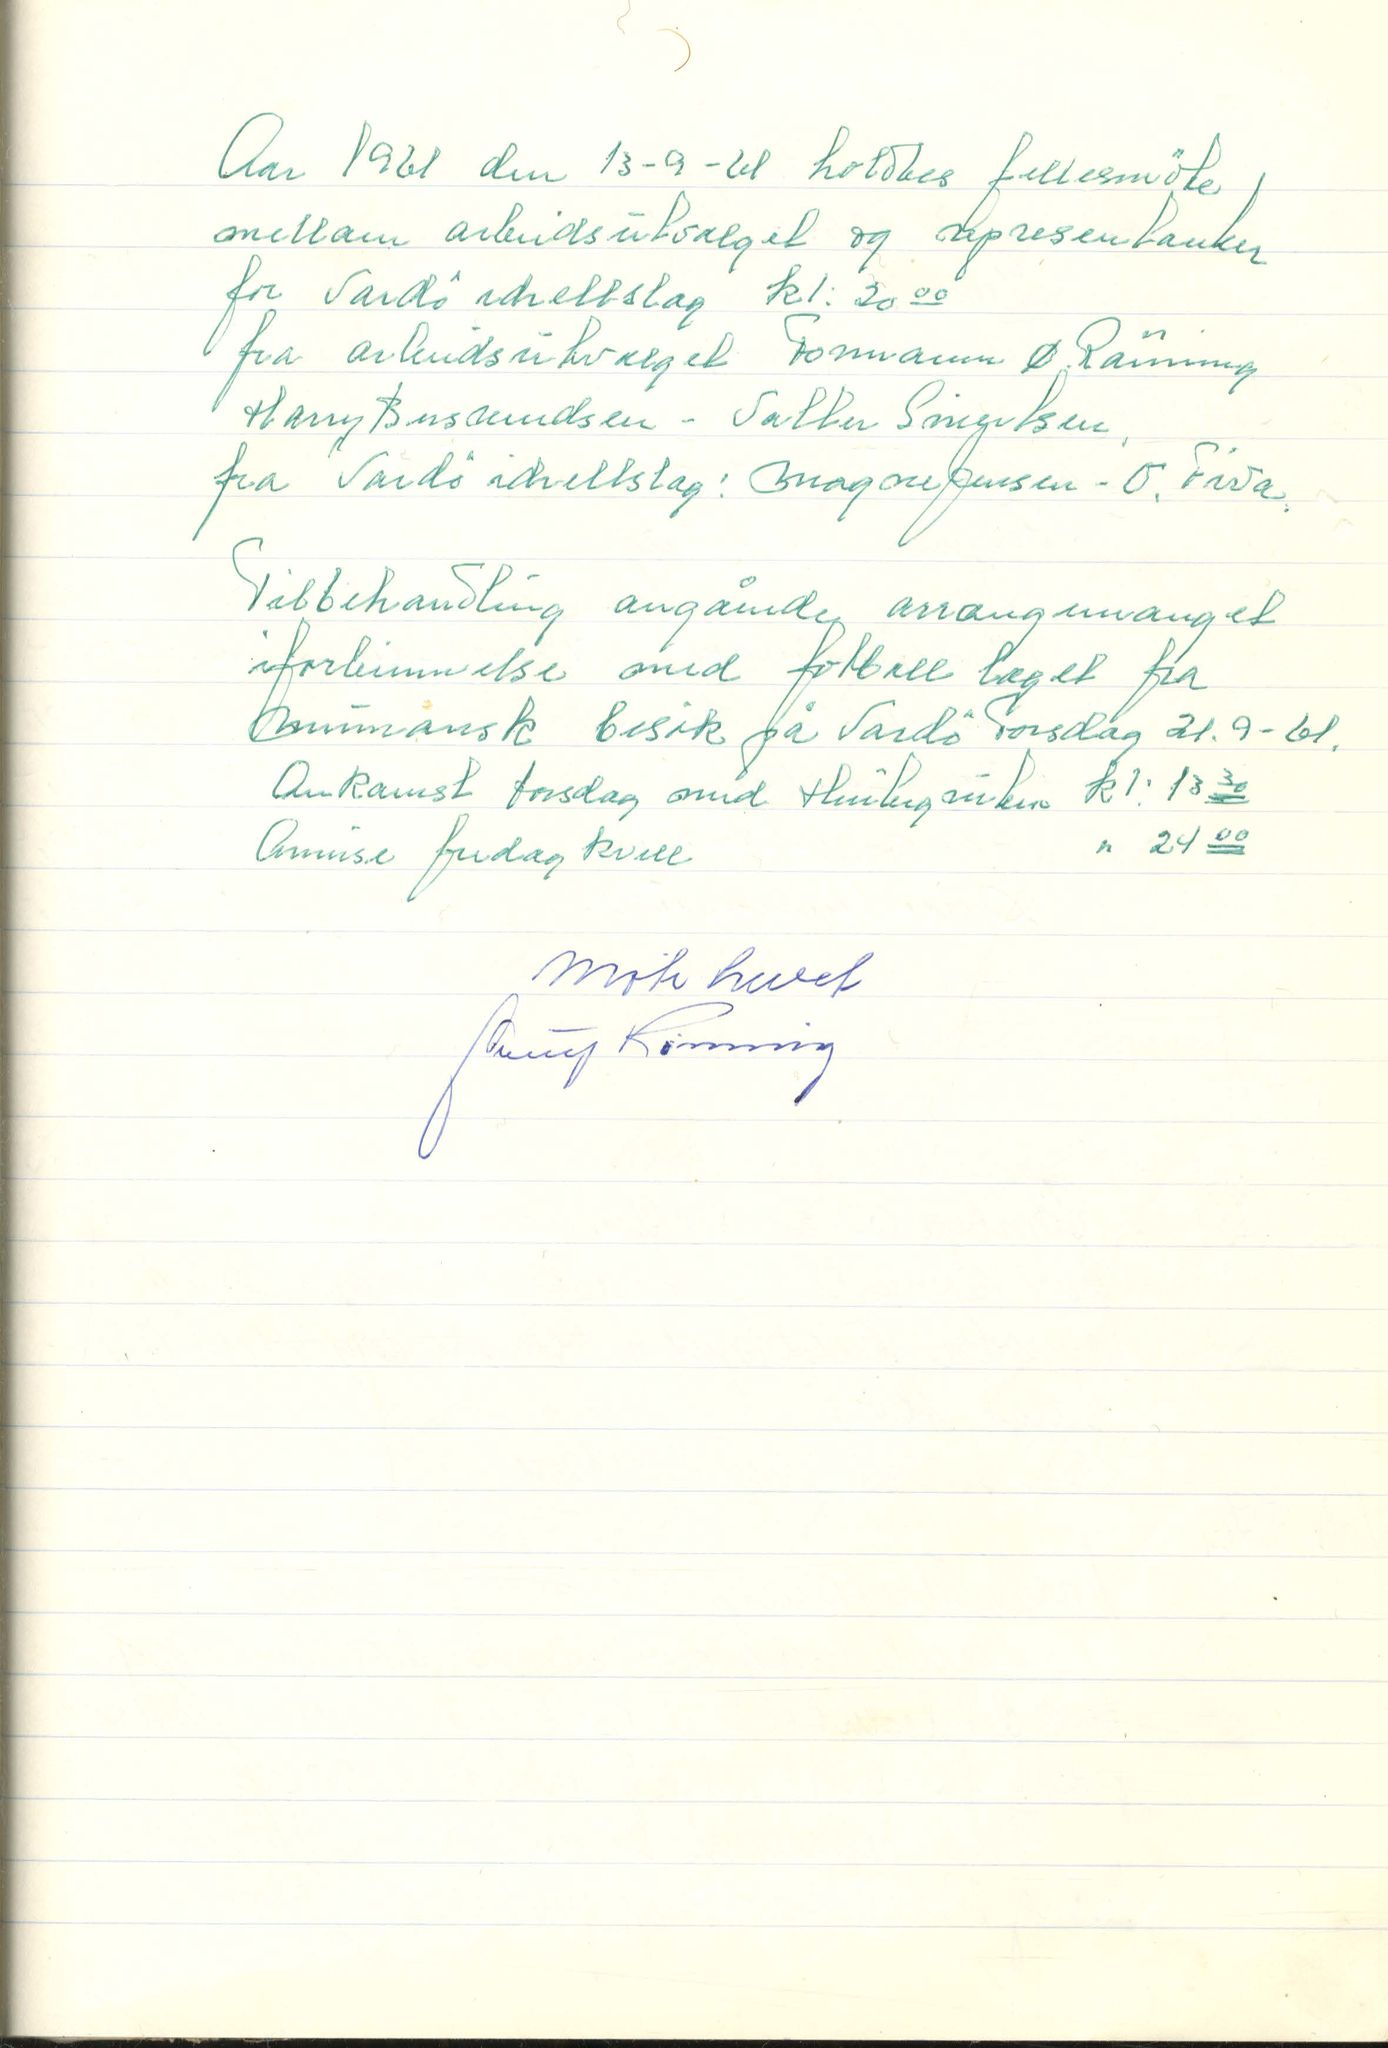 Aar 1961 den 13-9-61 holdtes fellesmöte
mellam arbeidsutvalget og representanter
for Vardö idrettslag kl: 20 00
fra arbeidsutvalget Formann Ø. Rönning
Harry - Valter Sivertsen.
fra Vardö idrettslag: Magne Jensen - O.
Tilbehandling angående arrangemanget
iforbinnelse med fotball laget fra
Murmansk besök på Vardö Torsdag 21.9-61.
Ankomst torsdag med Hurtigruten kl: 13 30
Avreise fredag kvell " 24 00
Möte hevet
Rönning